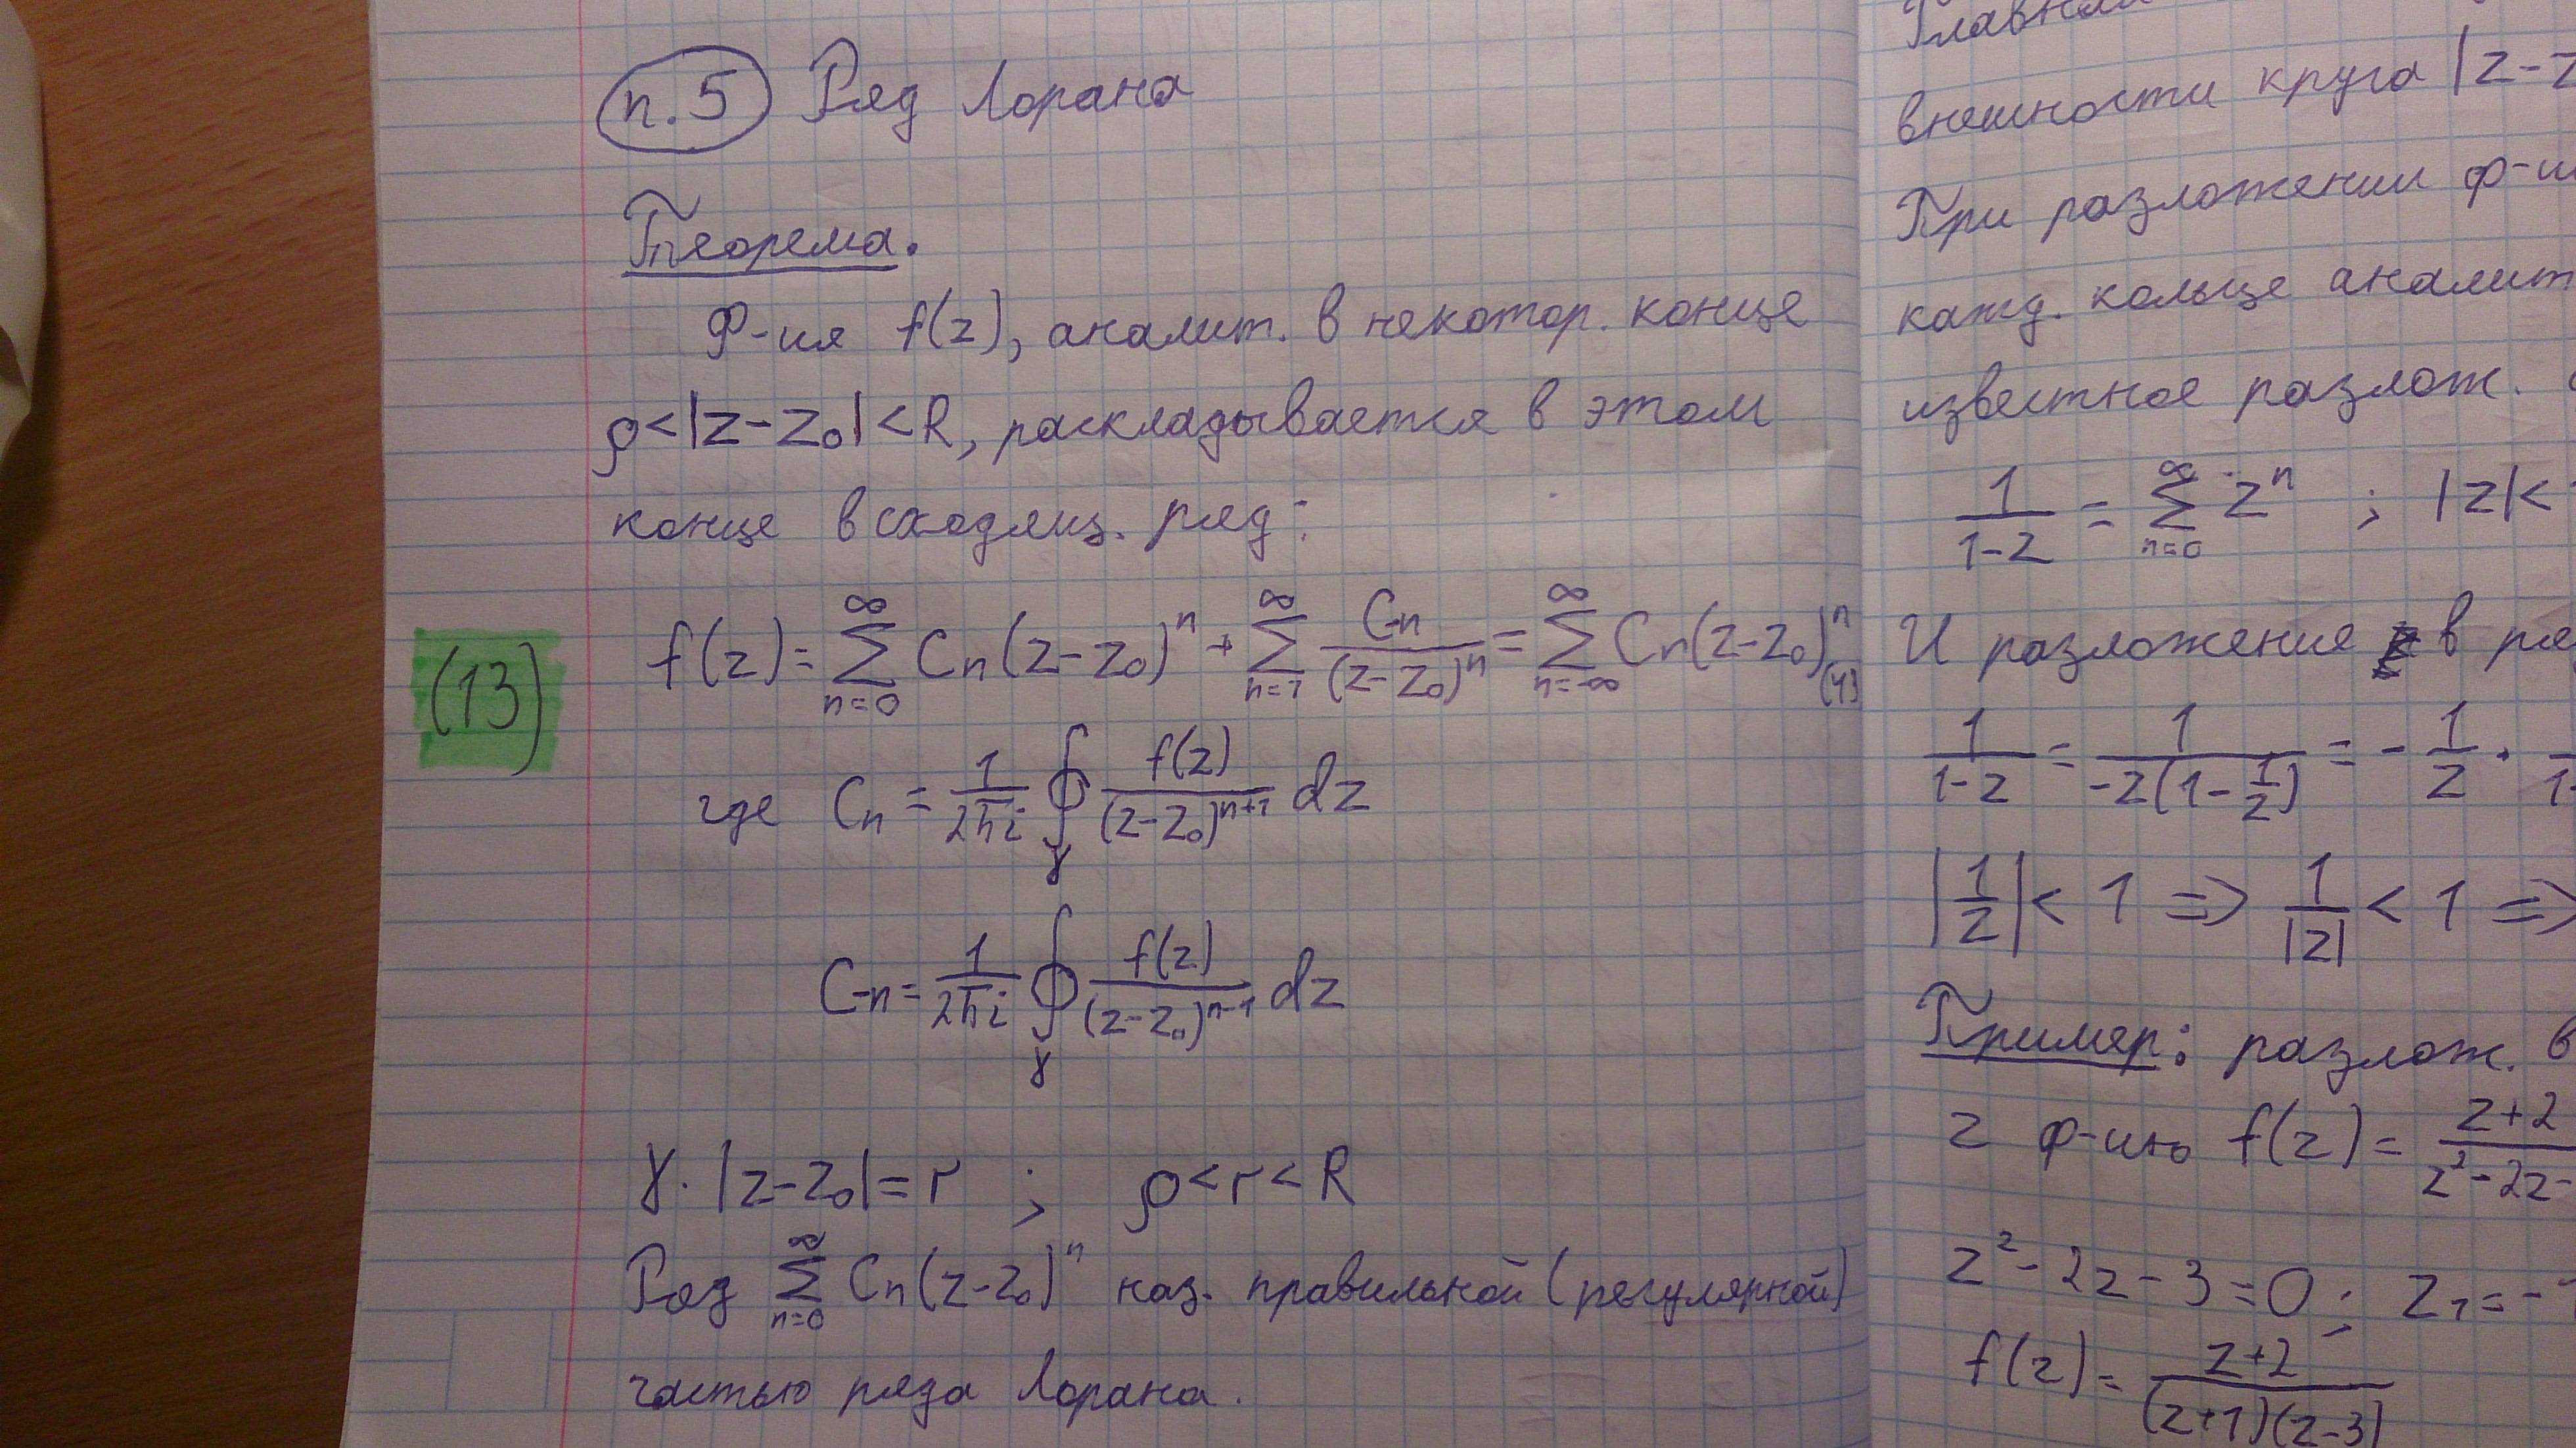 п.5 Ряд Лорана
Теорема.
Ф-ия f(z), аналит. в некотор. конце
ρ<|z-z₀|<R, раскладывается в этом
конце в сходящ. ряд:
(13)
f(z)=∑_{n=0}^{∞} Cₙ(z-z₀)ⁿ + ∑_{n=1}^{∞} C₋ₙ/(z-z₀)ⁿ = ∑_{n=-∞}^{∞} Cₙ(z-z₀)ⁿ
где Cₙ = 1/(2πi) ∮_γ f(z)/(z-z₀)ⁿ⁺¹ dz
C₋ₙ = 1/(2πi) ∮_γ f(z)/(z-z₀)ⁿ⁻¹ dz
γ. |z-z₀|=r ; ρ<r<R
Ряд ∑_{n=0}^{∞} Cₙ(z-z₀)ⁿ наз. правильной (регулярной)
частью ряда Лорана.
внешности круга |z-z
При разложении ф-и
кажд. кольце аналит
известное разлож.
1/(1-z) = ∑_{n=0}^{∞} zⁿ ; |z|<
И разложение в ря
1/(1-z) = 1/(-z(1-1/z)) = -1/z ·
|1/z|<1 ⇒ 1/|z|<1 ⇒
Пример: разлож. в
z ф-ию f(z)= (z+2)/(z²-2z-
z²-2z-3=0; z₁=-
f(z)= (z+2)/((z+1)(z-3))